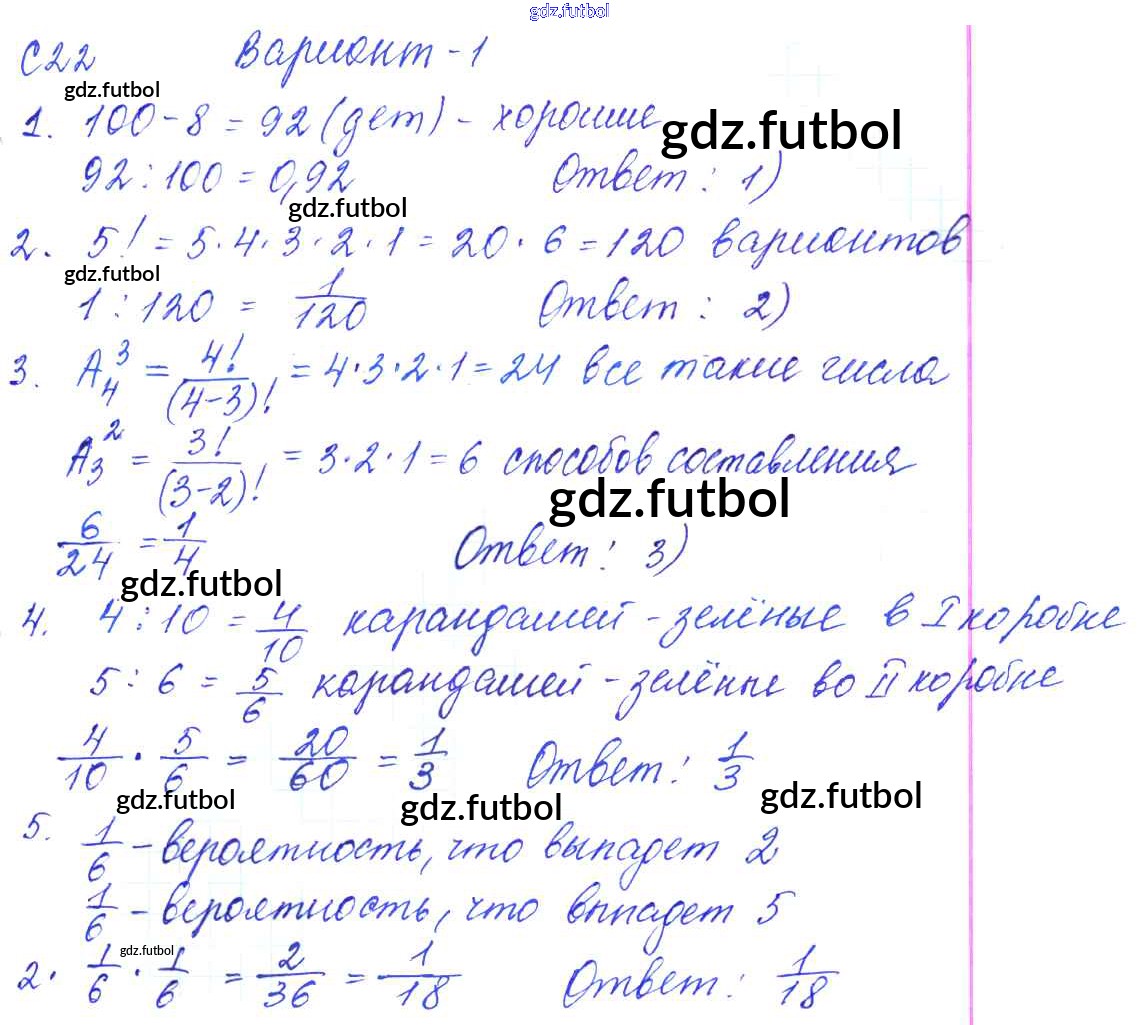 gdz.futbol
С22 Вариант-1
gdz.futbol
1. 100-8=92 (дет) - хорошие
gdz.futbol
92:100=0,92 Ответ: 1)
gdz.futbol
2. 5!=5·4·3·2·1=20·6=120 вариантов
gdz.futbol
1:120 = 1/120 Ответ: 2)
3. A₄³ = 4!/(4-3)! = 4·3·2·1=24 все такие числа
A₃² = 3!/(3-2)! = 3·2·1=6 способов составления
gdz.futbol
6/24 = 1/4 Ответ: 3)
gdz.futbol
4. 4:10 = 4/10 карандашей - зелёные в I коробке
5:6 = 5/6 карандашей - зелёные во II коробке
4/10 · 5/6 = 20/60 = 1/3 Ответ: 1/3
gdz.futbol gdz.futbol gdz.futbol
5. 1/6 - вероятность, что выпадет 2
1/6 - вероятность, что выпадет 5
gdz.futbol
2· 1/6 · 1/6 = 2/36 = 1/18 Ответ: 1/18